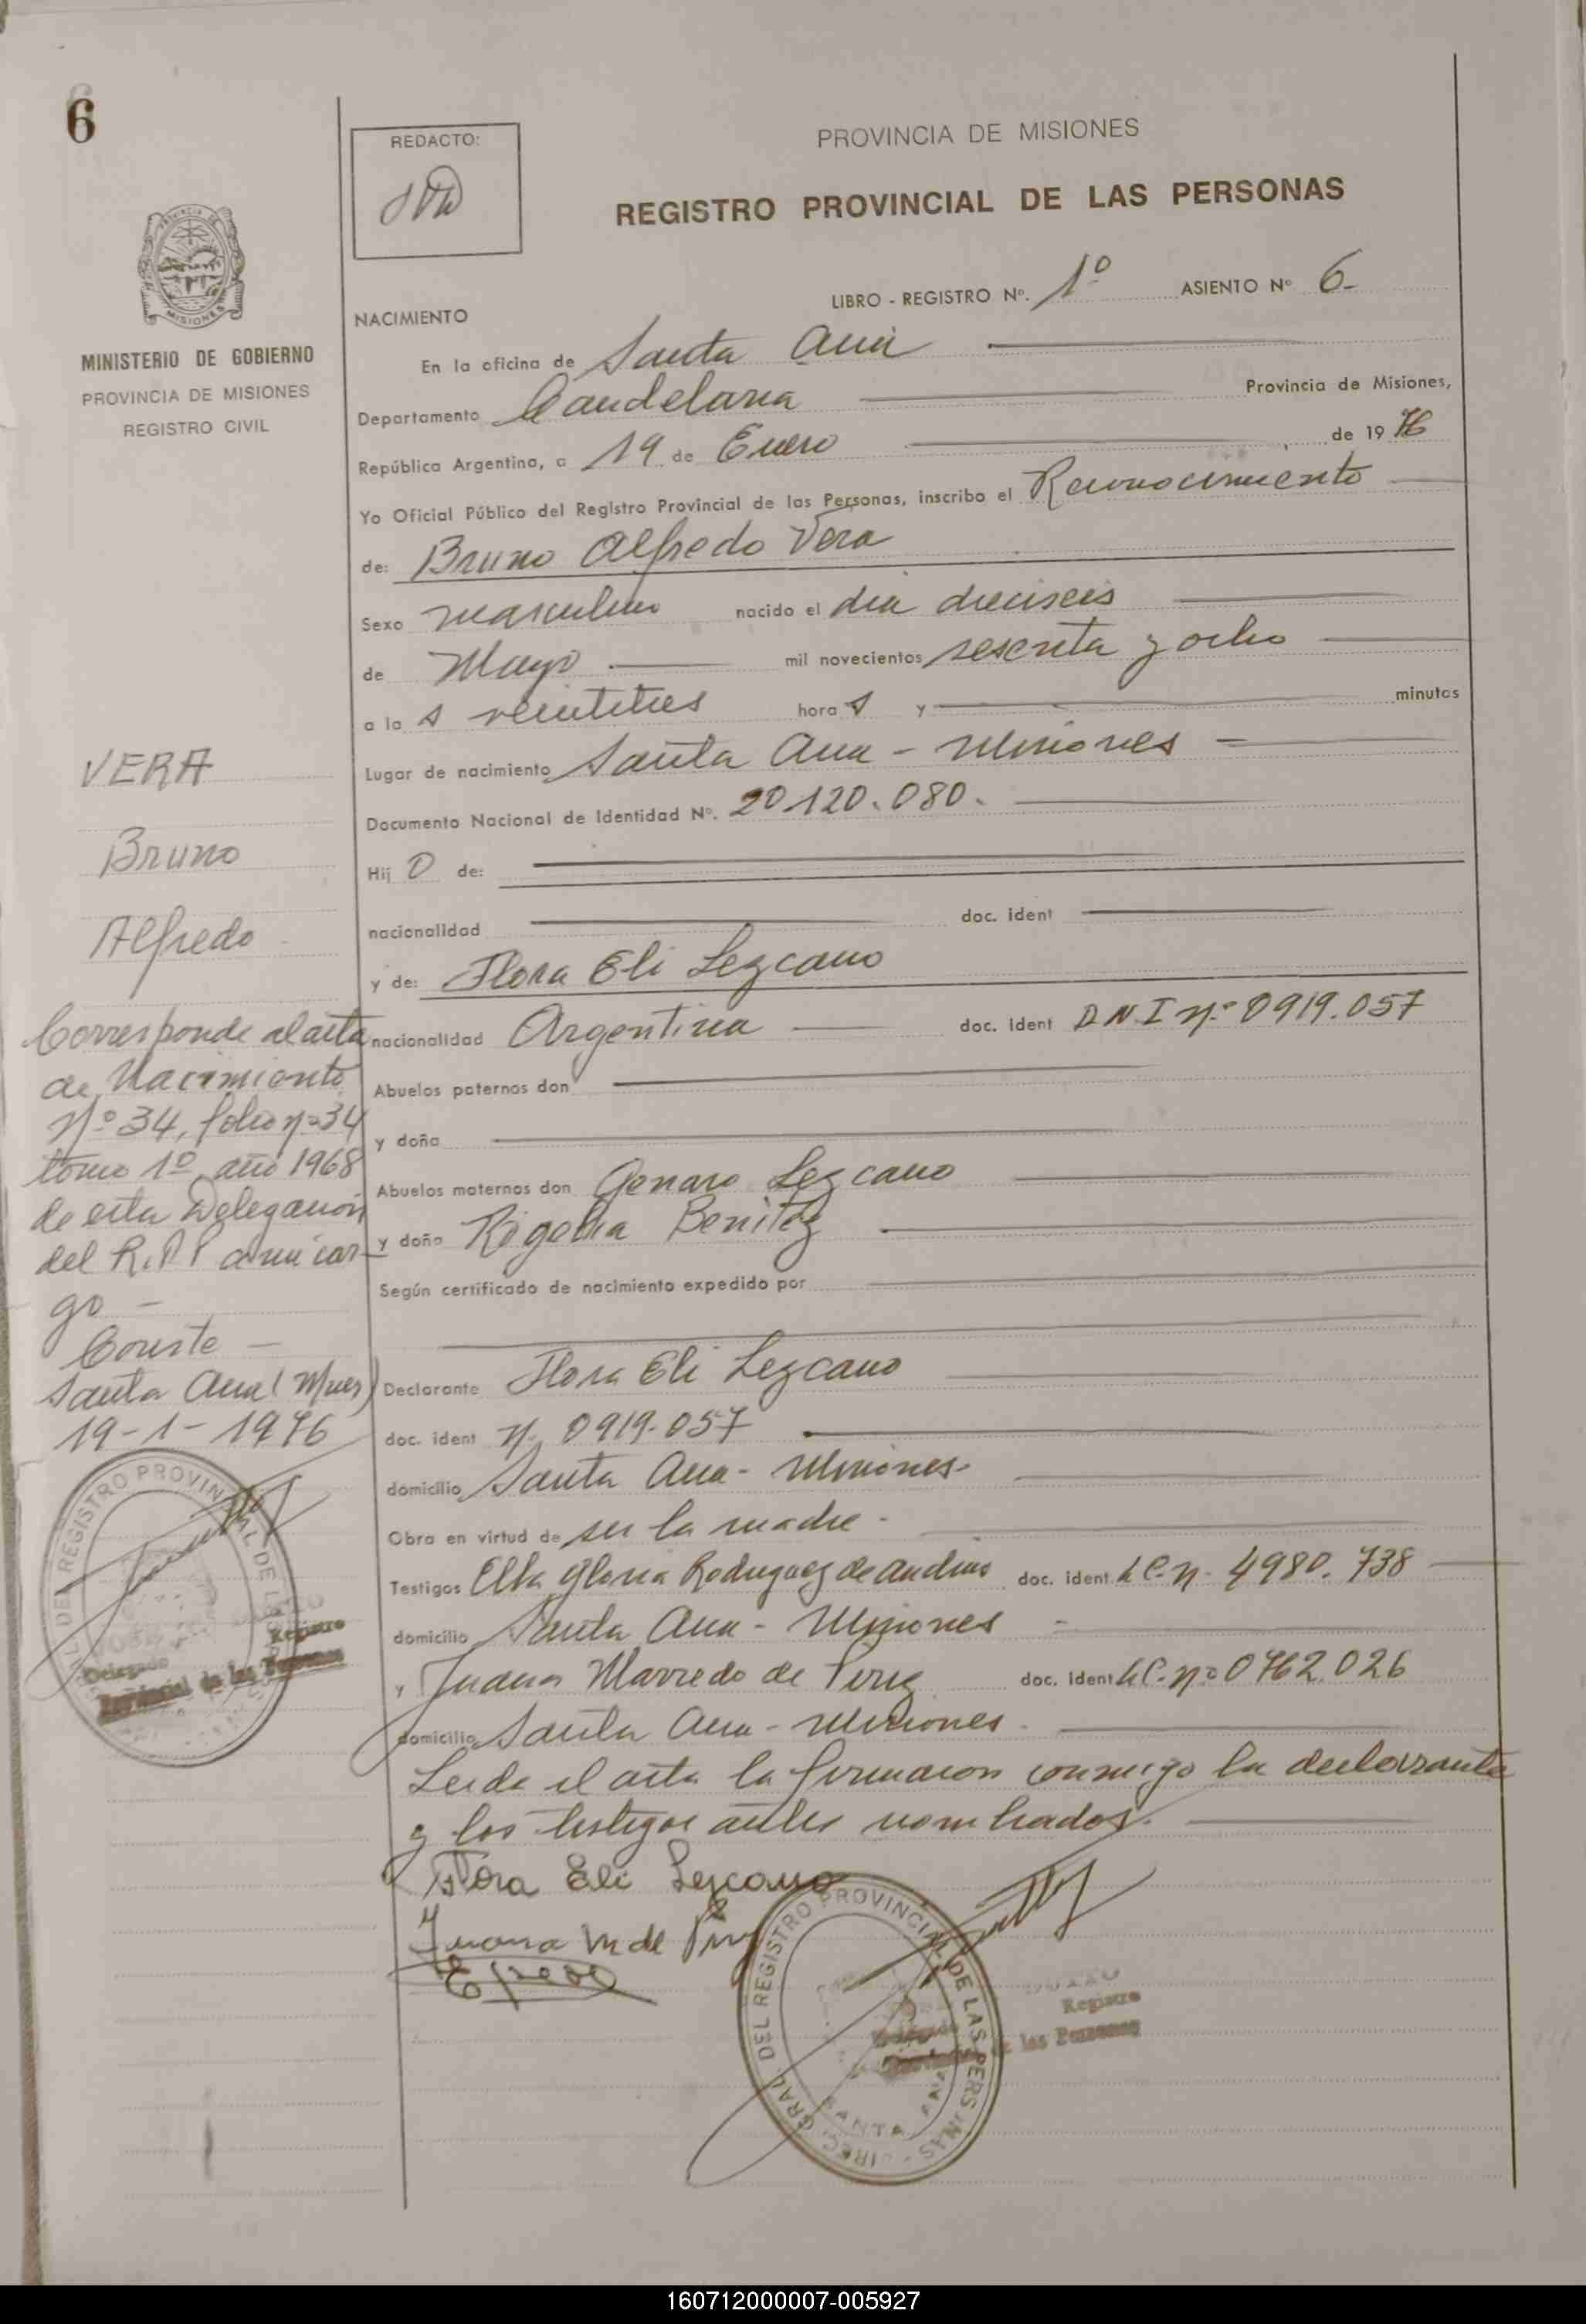 6
REDACTO:
PROVINCIA DE MISIONES
REGISTRO PROVINCIAL DE LAS PERSONAS
MISIONES
MINISTERIO DE GOBIERNO
PROVINCIA DE MISIONES
REGISTRO CIVIL
LIBRO - REGISTRO Nº. 1º ASIENTO Nº 6-
NACIMIENTO
En la oficina de Santa Ana
Departamento Candelaria Provincia de Misiones,
República Argentina, a 19 de Enero de 1976
Yo Oficial Público del Registro Provincial de las Personas, inscribo el Reconocimiento
de: Bruno Alfredo Vera
Sexo masculino nacido el dia dieciseis
de Mayo mil novecientos sesenta y ocho
a las veintitres horas y minutos
Lugar de nacimiento Santa Ana - Misiones
Documento Nacional de Identidad Nº. 20.120.080.
Hijo de:
nacionalidad doc. ident
y de: Flora Eli Lezcano
nacionalidad Argentina doc. ident D.N.I nº 0919.057
Abuelos paternos don
y doña
Abuelos maternos don Genaro Lezcano
y doña Benitez
Según certificado de nacimiento expedido por
Declarante Flora Eli Lezcano
doc. ident N. 0919.057
domicilio Santa Ana - Misiones
Obra en virtud de ser la madre.
Testigos Elba Gloria Rodriguez de Andino doc. ident. L.C. n. 4980.738
domicilio Santa Ana - Misiones
y Juana Marredo de doc. ident L.C. nº 0762.026
domicilio Santa Ana - Misiones
Leida el acta la firmaron conmigo la declarante
y los testigos antes nombrados.
Flora Eli Lezcano
Juana M de
VERA
Bruno
Alfredo
Corresponde al acta
de Nacimiento
Nº 34, folio nº 34
tomo 1º año 1968
de esta Delegación
del R.P.P a mi car-
go -
Conste -
Santa Ana (Mnes)
19-1-1976
DEL REGISTRO PROVINCIAL DE LAS
Delegado Registro
Provincial de las Personas
DIREC. GRAL. DEL REGISTRO PROVINCIAL DE LAS PERSONAS
SANTA ANA
Delegado Registro
Provincial de las Personas
160712000007-005927